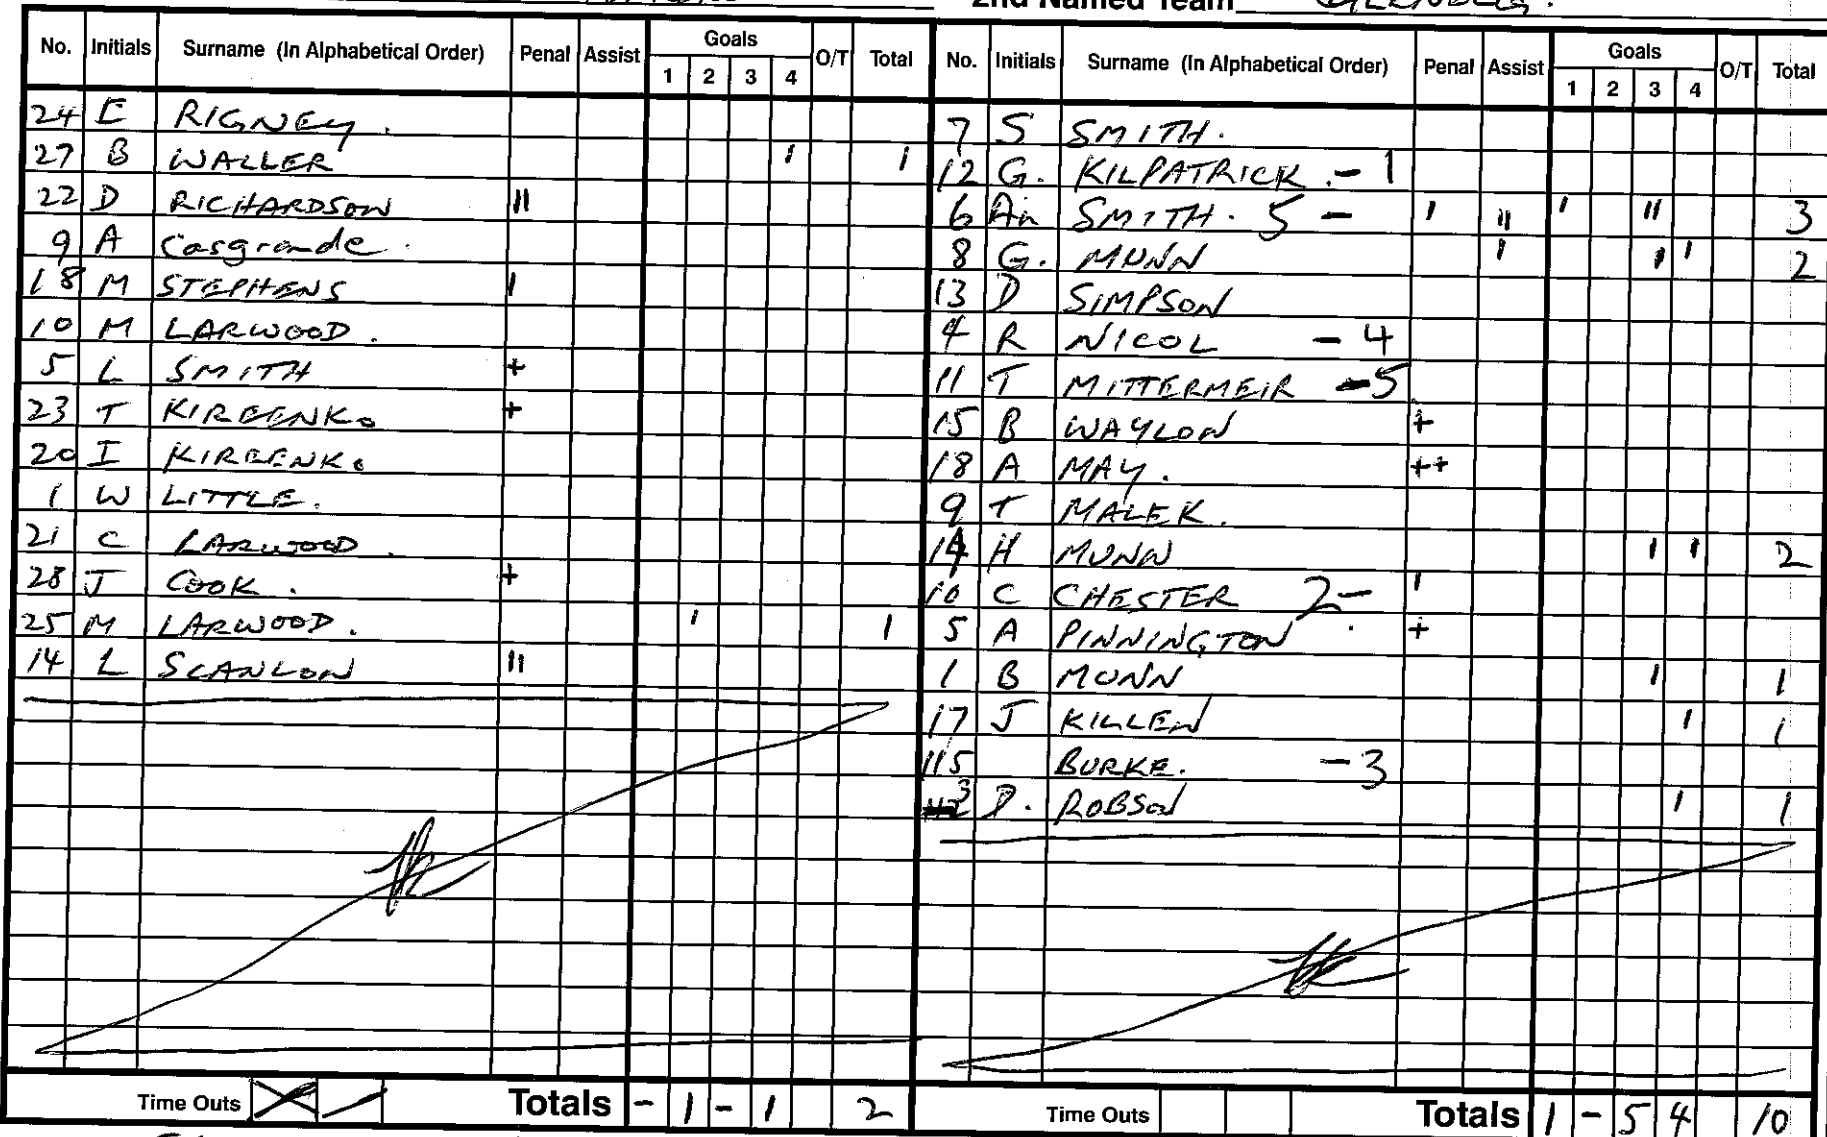 2nd Named Team GLENELG.
No. Initials Surname (In Alphabetical Order) Penal Assist Goals 1 2 3 4 O/T Total
24 E RIGNEY.
27 B WALLER 1 1
22 D RICHARDSON 11
9 A Casgrande.
18 M STEPHENS 1
10 M LARWOOD.
5 L SMITH +
23 T KIRBENKO +
20 I KIRBENKO
1 W LITTLE.
21 C LARWOOD.
28 J COOK. +
25 M LARWOOD. 1 1
14 L SCANLON 11
Time Outs Totals - 1 - 1 2
No. Initials Surname (In Alphabetical Order) Penal Assist Goals 1 2 3 4 O/T Total
7 S SMITH.
12 G. KILPATRICK. - 1
6 An SMITH. 5 - 1 11 1 11 3
8 G. MUNN 1 1 1 2
13 D SIMPSON
4 R NICOL - 4
11 T MITTERMEIR - 5
15 B WAYLON +
18 A MAY. ++
9 T MALEK.
14 H MUNN 1 1 2
10 C CHESTER 2 - 1
5 A PINNINGTON +
1 B MUNN 1 1
17 J KILLEN 1 1
115 BURKE. - 3
3 D. ROBSON 1 1
Time Outs Totals 1 - 5 4 10